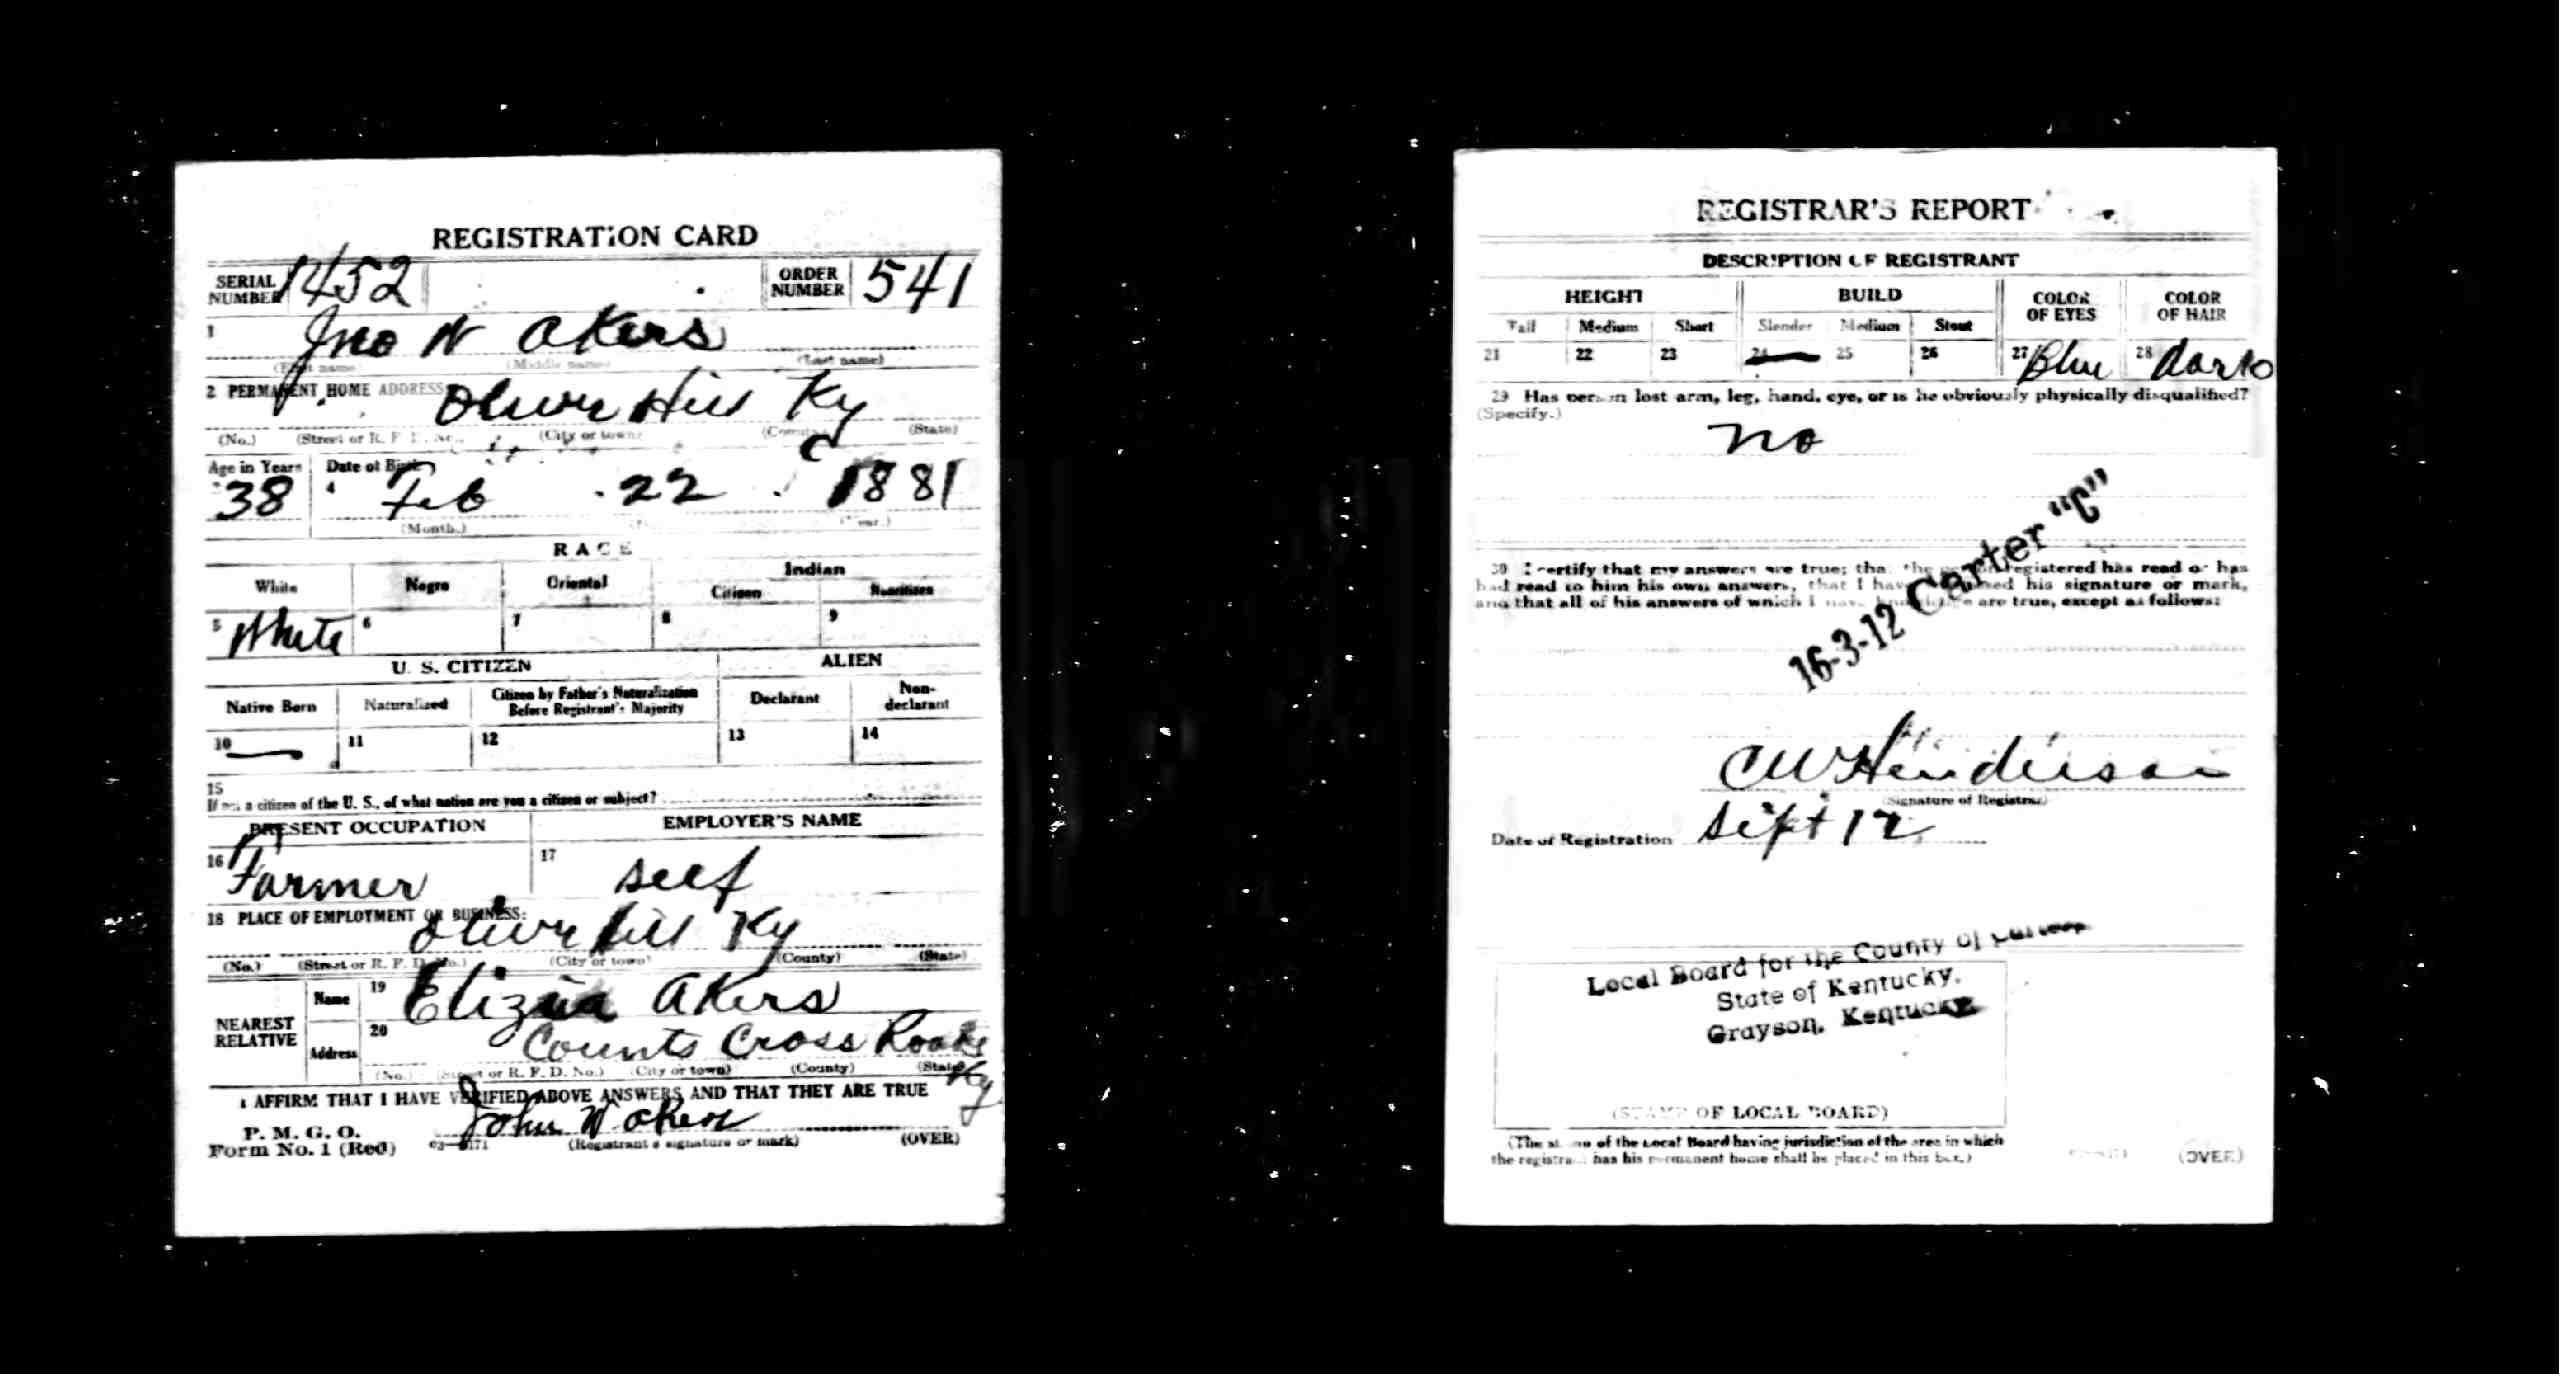 REGISTRATION CARD
SERIAL NUMBER 1452 ORDER NUMBER 541
1 Jno W Akers
(First name) (Middle name) (Last name)
2 PERMANENT HOME ADDRESS: Olive Hill Ky
(No.) (Street or R. F. D. No.) (City or town) (County) (State)
Age in Years Date of Birth
38 4 Feb 22 1881
(Month.) (Year.)
RACE
White Negro Oriental Indian
Citizen Noncitizen
5 White 6 7 8 9
U. S. CITIZEN ALIEN
Native Born Naturalized Citizen by Father's Naturalization Before Registrant's Majority Declarant Non-declarant
10 11 12 13 14
15
If not a citizen of the U. S., of what nation are you a citizen or subject?
PRESENT OCCUPATION EMPLOYER'S NAME
16 Farmer 17 self
18 PLACE OF EMPLOYMENT OR BUSINESS:
Olive Hill Ky
(No.) (Street or R. F. D. No.) (City or town) (County) (State)
NEAREST RELATIVE Name 19 Akers
Address 20 Counts Cross Roads Ky
(No.) (Street or R. F. D. No.) (City or town) (County) (State)
I AFFIRM THAT I HAVE VERIFIED ABOVE ANSWERS AND THAT THEY ARE TRUE
P. M. G. O.
Form No. 1 (Red) John W Akers
(Registrant's signature or mark) (OVER)
REGISTRAR'S REPORT
DESCRIPTION OF REGISTRANT
HEIGHT BUILD COLOR OF EYES COLOR OF HAIR
Tall Medium Short Slender Medium Stout
21 22 23 24 25 26 27 Blue 28 dark
29 Has person lost arm, leg, hand, eye, or is he obviously physically disqualified?
(Specify.)
no
30 I certify that my answers are true; that the person registered has read or has
had read to him his own answers, that I have witnessed his signature or mark,
and that all of his answers of which I have knowledge are true, except as follows:
16-3-12 Carter "C"
CW Henderson
(Signature of Registrar)
Date of Registration Sept 12
Local Board for the County of Carter
State of Kentucky.
Grayson, Kentucky
(STAMP OF LOCAL BOARD)
(The stamp of the Local Board having jurisdiction of the area in which
the registrant has his permanent home shall be placed in this box.)
(OVER)